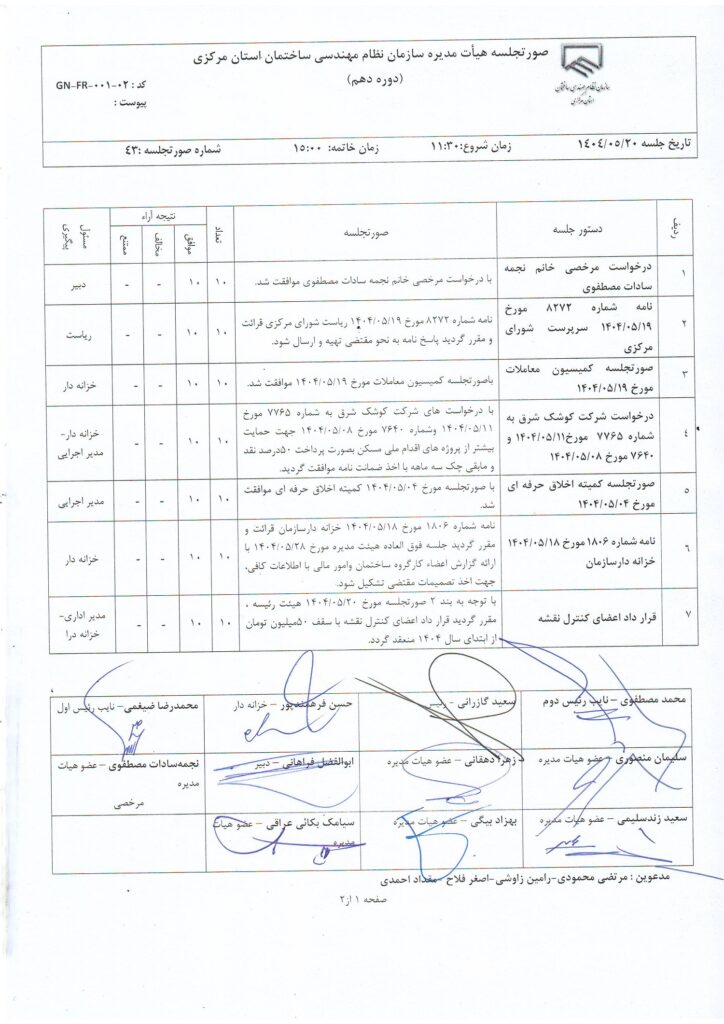 صورتجلسه هیأت مدیره سازمان نظام مهندسی ساختمان استان مرکزی
(دوره دهم)
سازمان نظام مهندسی ساختمان
استان مرکزی
کد : GN-FR-۰۰۱-۰۲
پیوست :
تاریخ جلسه ۱۴۰۴/۰۵/۲۰ زمان شروع:۱۱:۳۰ زمان خاتمه: ۱۵:۰۰ شماره صورتجلسه :۴۳
ردیف دستور جلسه صورتجلسه تعداد نتیجه آراء مسئول پیگیری
موافق مخالف ممتنع
۱
درخواست مرخصی خانم نجمه
سادات مصطفوی
با درخواست مرخصی خانم نجمه سادات مصطفوی موافقت شد.
۱۰ ۱۰ - - دبیر
۲
نامه شماره ۸۲۷۲ مورخ
۱۴۰۴/۰۵/۱۹ سرپرست شورای
مرکزی
نامه شماره ۸۲۷۲ مورخ ۱۴۰۴/۰۵/۱۹ ریاست شورای مرکزی قرائت
و مقرر گردید پاسخ نامه به نحو مقتضی تهیه و ارسال شود.
۱۰ ۱۰ - - ریاست
۳
صورتجلسه کمیسیون معاملات
مورخ ۱۴۰۴/۰۵/۱۹
باصورتجلسه کمیسیون معاملات مورخ ۱۴۰۴/۰۵/۱۹ موافقت شد.
۱۰ ۱۰ - - خزانه دار
۴
درخواست شرکت کوشک شرق به
شماره ۷۷۶۵ مورخ۱۴۰۴/۰۵/۱۱ و
۷۶۴۰ مورخ ۱۴۰۴/۰۵/۰۸
با درخواست های شرکت کوشک شرق به شماره ۷۷۶۵ مورخ
۱۴۰۴/۰۵/۱۱ وشماره ۷۶۴۰ مورخ ۱۴۰۴/۰۵/۰۸ جهت حمایت
بیشتر از پروژه های اقدام ملی مسکن بصورت پرداخت ۵۰درصد نقد
و مابقی چک سه ماهه با اخذ ضمانت نامه موافقت گردید.
۱۰ ۱۰ - - خزانه دار-
مدیر اجرایی
۵
صورتجلسه کمیته اخلاق حرفه ای
مورخ ۱۴۰۴/۰۵/۰۴
با صورتجلسه مورخ ۱۴۰۴/۰۵/۰۴ کمیته اخلاق حرفه ای موافقت
شد.
۱۰ ۱۰ - - مدیر اجرایی
۶
نامه شماره ۱۸۰۶ مورخ ۱۴۰۴/۰۵/۱۸
خزانه دارسازمان
نامه شماره ۱۸۰۶ مورخ ۱۴۰۴/۰۵/۱۸ خزانه دارسازمان قرائت و
مقرر گردید جلسه فوق العاده هیئت مدیره مورخ ۱۴۰۴/۰۵/۲۸ با
ارائه گزارش اعضاء کارگروه ساختمان وامور مالی با اطلاعات کافی،
جهت اخذ تصمیمات مقتضی تشکیل شود.
۱۰ ۱۰ - - خزانه دار
۷
قرار داد اعضای کنترل نقشه
با توجه به بند ۲ صورتجلسه مورخ ۱۴۰۴/۰۵/۲۰ هیئت رئیسه ،
مقرر گردید قرار داد اعضای کنترل نقشه با سقف ۵۰میلیون تومان
از ابتدای سال ۱۴۰۴ منعقد گردد.
۱۰ ۱۰ - - مدیر اداری-
خزانه درا
محمد مصطفوی – نایب رئیس دوم
سعید گازرانی – رئیس
حسن فرهمندپور – خزانه دار
محمدرضا ضیغمی – نایب رئیس اول
سلیمان منصوری – عضو هیات مدیره
زهرا دهقانی – عضو هیات مدیره
ابوالفضل فراهانی – دبیر
نجمه‌سادات مصطفوی – عضو هیات
مدیره
مرخصی
سعید زندسلیمی – عضو هیات مدیره
بهزاد بیگی – عضو هیات مدیره
سیامک بکائی عراقی – عضو هیات
مدیره
مدعوین : مرتضی محمودی-رامین زاوشی-اصغر فلاح -مقداد احمدی
صفحه ۱ از۲